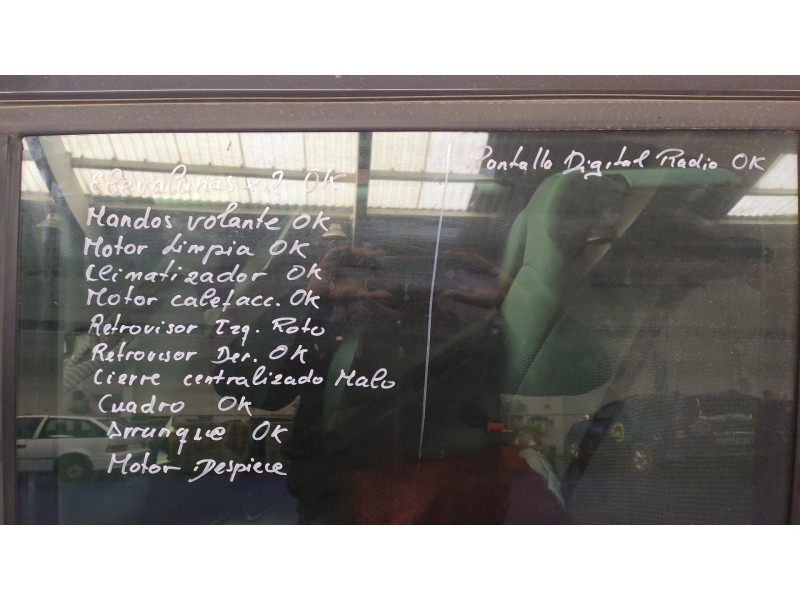 Elevalunas x2 OK
Mandos volante OK
Motor Limpia OK
Climatizador OK
Motor calefacc. OK
Retrovisor Izq. Roto
Retrovisor Der. OK
Cierre centralizado Malo
Cuadro OK
Arranque OK
Motor Despiece
Pantalla Digital Radio OK